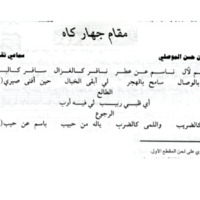 مقام جهار كاه
ن حسن الموصلي سماعي ثق
م لآل ناسم عن عطر نافر كالغزال سافر كالبد
بالوصال سامح بالهجر لي أبقى الخبال حين أفنى صبري(
الطالع
أي ظبي ربيب لي فيه أرب
الرجوع
كالضريب واللمى كالضرب ياله من حبيب باسم عن حبب(
ري على لحن المقطع الأول.